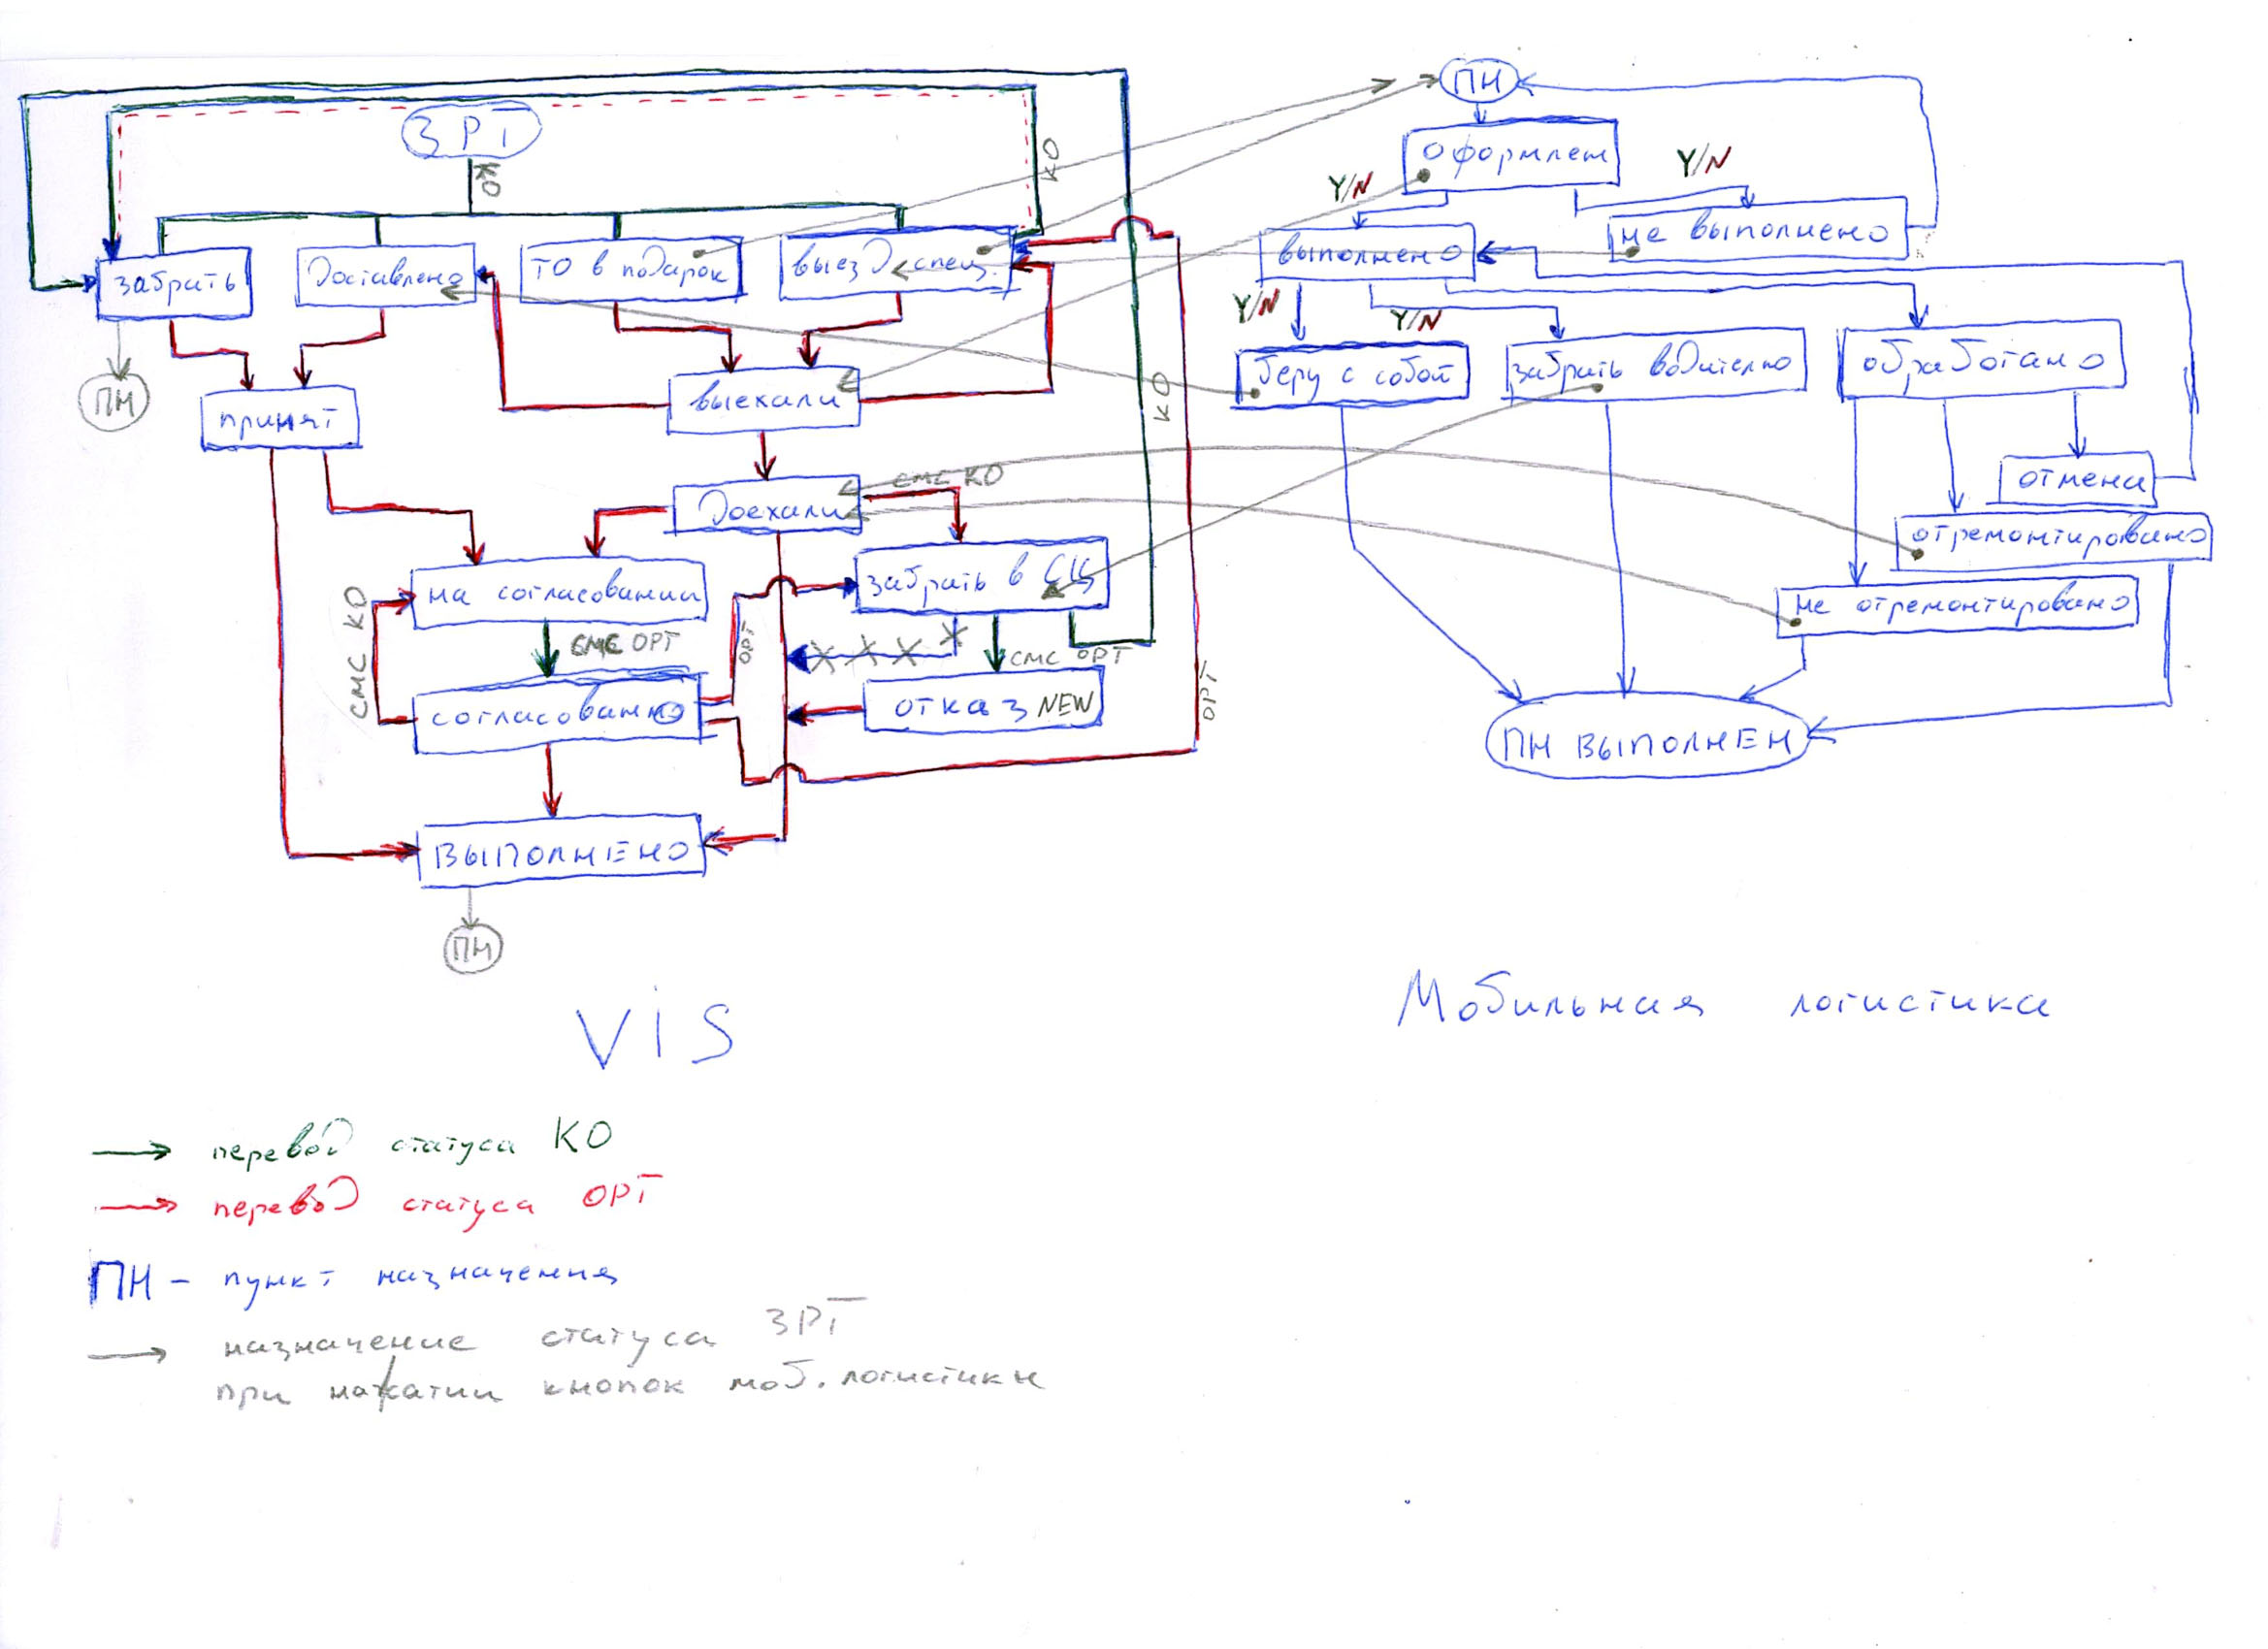 ЗРТ
КО
КО
забрать
Доставлено
ТО в подарок
выезд спец.
ПН
принят
выехали
КО
Доехали
смс КО
на согласовании
забрать в СЦ
смс КО
смс ОРТ
ОРТ
смс ОРТ
согласованно
отказ NEW
ОРТ
ВЫПОЛНЕНО
ПН
VIS
ПН
оформлен
Y/N
Y/N
выполнено
не выполнено
Y/N
Y/N
беру с собой
забрать водителю
обработано
отмена
отремонтировано
не отремонтировано
ПН ВЫПОЛНЕН
Мобильная логистика
перевод статуса КО
перевод статуса ОРТ
ПН – пункт назначения
назначение статуса ЗРТ
при нажатии кнопок моб. логистики